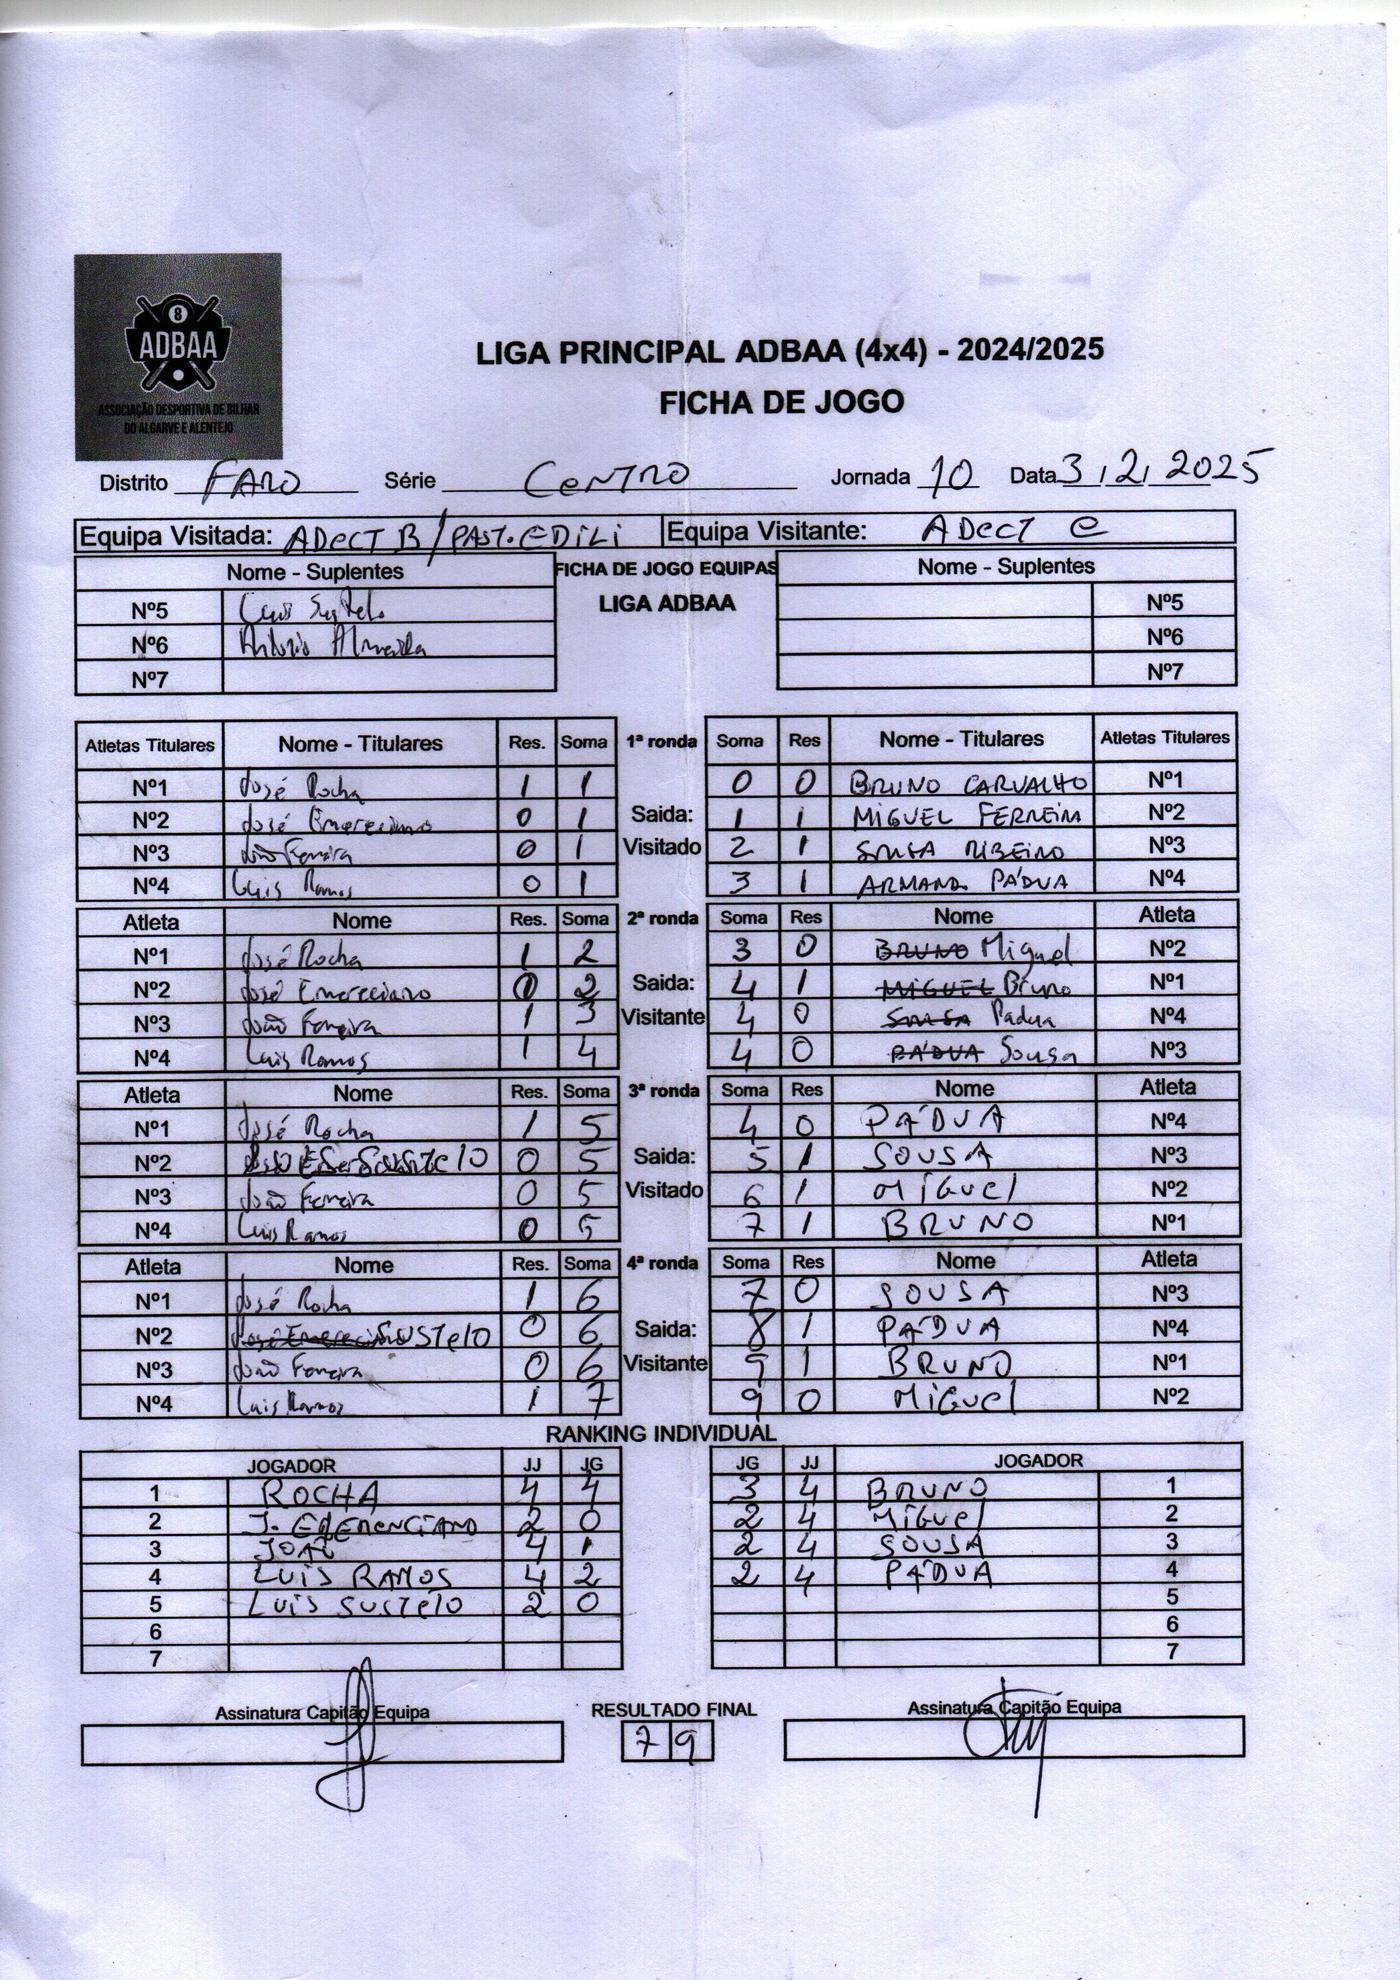 8
ADBAA
ASSOCIAÇÃO DESPORTIVA DE BILHAR
DO ALGARVE E ALENTEJO
LIGA PRINCIPAL ADBAA (4x4) - 2024/2025
FICHA DE JOGO
Distrito FARO Série CeNTRO Jornada 10 Data 3/2/2025
Equipa Visitada: ADeCT B / PAST. EDILI Equipa Visitante: ADeCT e
Nome - Suplentes FICHA DE JOGO EQUIPAS Nome - Suplentes
LIGA ADBAA
Nº5 Luis Sustelo Nº5
Nº6 António Almeida Nº6
Nº7 Nº7
Atletas Titulares Nome - Titulares Res. Soma 1ª ronda Soma Res Nome - Titulares Atletas Titulares
Nº1 José Rocha 1 1 0 0 BRUNO CARVALHO Nº1
Nº2 José Emereciano 0 1 Saida: 1 1 MIGUEL FERREIRA Nº2
Nº3 João Ferreira 0 1 Visitado 2 1 SOUSA RIBEIRO Nº3
Nº4 Luis Ramos 0 1 3 1 ARMANDO PÁDUA Nº4
Atleta Nome Res. Soma 2ª ronda Soma Res Nome Atleta
Nº1 José Rocha 1 2 3 0 BRUNO Miguel Nº2
Nº2 José Emereciano 0 2 Saida: 4 1 MIGUEL Bruno Nº1
Nº3 João Ferreira 1 3 Visitante 4 0 SOUSA Padua Nº4
Nº4 Luis Ramos 1 4 4 0 PÁDUA Sousa Nº3
Atleta Nome Res. Soma 3ª ronda Soma Res Nome Atleta
Nº1 José Rocha 1 5 4 0 PÁDUA Nº4
Nº2 SUSTelO 0 5 Saida: 5 1 SOUSA Nº3
Nº3 João Ferreira 0 5 Visitado 6 1 MIGUel Nº2
Nº4 Luis Ramos 0 5 7 1 BRUNO Nº1
Atleta Nome Res. Soma 4ª ronda Soma Res Nome Atleta
Nº1 José Rocha 1 6 7 0 SOUSA Nº3
Nº2 José Emereciano SUSTelO 0 6 Saida: 8 1 PÁDUA Nº4
Nº3 João Ferreira 0 6 Visitante 9 1 BRUNO Nº1
Nº4 Luis Ramos 1 7 9 0 MIGUel Nº2
RANKING INDIVIDUAL
JOGADOR JJ JG JG JJ JOGADOR
1 ROCHA 4 4 3 4 BRUNO 1
2 J. EMERENCIANO 2 0 2 4 MIGUel 2
3 JOAO 4 1 2 4 SOUSA 3
4 LUIS RAMOS 4 2 2 4 PÁDUA 4
5 LUIS SUSTElO 2 0 5
6 6
7 7
Assinatura Capitão Equipa RESULTADO FINAL Assinatura Capitão Equipa
7 9